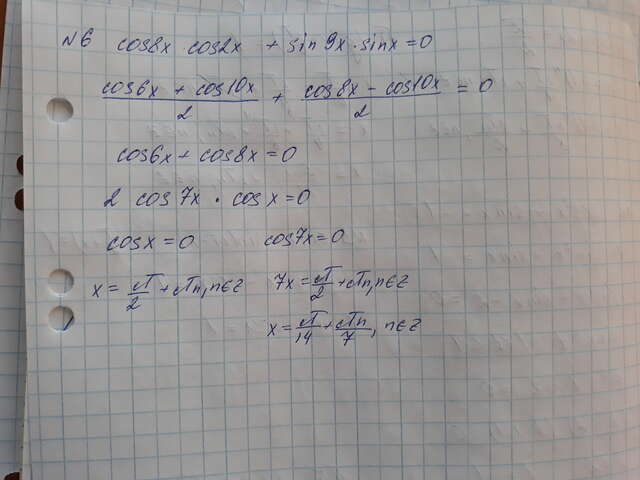 N6 cos8x cos2x + sin9x·sinx=0
cos6x + cos10x / 2 + cos8x - cos10x / 2 = 0
cos6x + cos8x = 0
2 cos7x · cosx = 0
cosx = 0 cos7x = 0
x = π/2 + πn, n∈z 7x = π/2 + πn, n∈z
x = π/14 + πn/7, n∈z